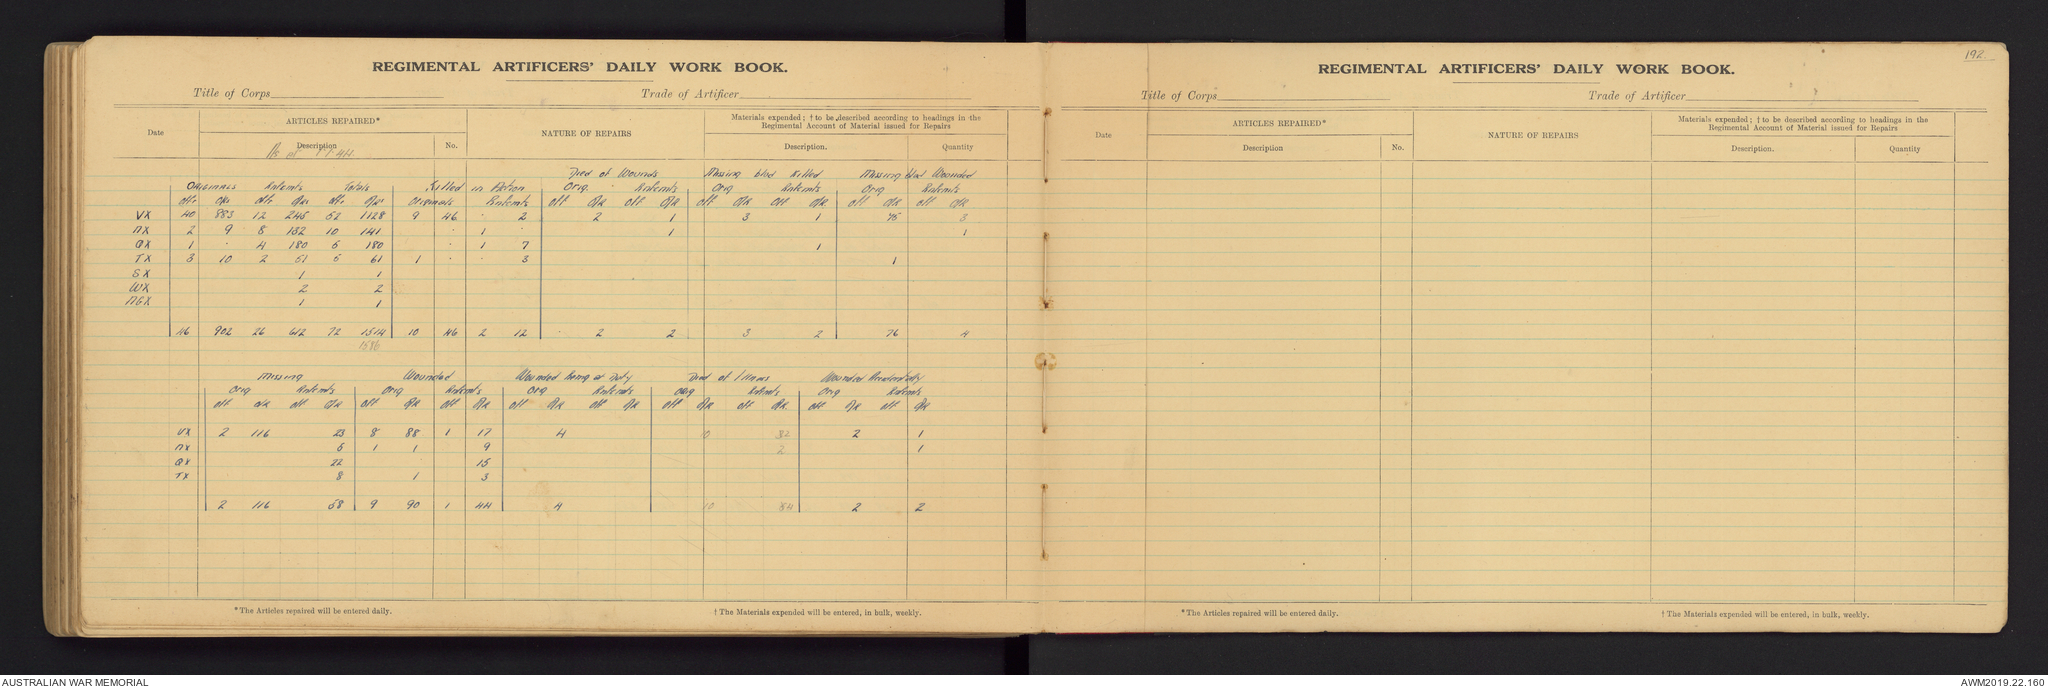 REGIMENTAL ARTIFICERS' DAILY WORK BOOK.
Title of Corps Trade of Artificer
Date ARTICLES REPAIRED* NATURE OF REPAIRS Materials expended; † to be described according to headings in the
Regimental Account of Material issued for Repairs
Description No. Description. Quantity
As at
Died of Wounds Missing blvd Killed Missing blvd Wounded
Originals Rntemts Totals Killed in Action Orig. Rntemts Orig Rntemts Orig Rntemts
Offr ORs Offr ORs Offr ORs Originals Rntemts Off OR Off OR Off OR Off OR Off OR Off OR
VX 40 883 12 245 52 1128 9 46 . 2 2 1 3 1 75 3
NX 2 9 8 132 10 141 . 1 . 1 1
QX 1 . 4 180 5 180 . 1 7 1
TX 3 10 2 51 5 61 1 . . 3 1
SX 1 1
WX 2 2
NGX 1 1
46 902 26 612 72 1514 10 46 2 12 . 2 2 3 2 76 4
1586
Missing Wounded Wounded Remg at Duty Died of Illness Wounded Accidentally
Orig Rntemts Orig Rntemts Orig Rntemts Orig Rntemts Orig Rntemts
Off OR Off OR Off OR Off OR Off OR Off OR Off OR Off OR Off OR Off OR
VX 2 116 23 8 88 1 17 4 10 32 2 1
NX 5 1 1 9 2 1
QX 22 15
TX 8 1 3
2 116 58 9 90 1 44 4 10 34 2 2
*The Articles repaired will be entered daily. † The Materials expended will be entered, in bulk, weekly.
192.
REGIMENTAL ARTIFICERS' DAILY WORK BOOK.
Title of Corps Trade of Artificer
Date ARTICLES REPAIRED* NATURE OF REPAIRS Materials expended; † to be described according to headings in the
Regimental Account of Material issued for Repairs
Description No. Description. Quantity
*The Articles repaired will be entered daily. † The Materials expended will be entered, in bulk, weekly.
AUSTRALIAN WAR MEMORIAL AWM2019.22.160